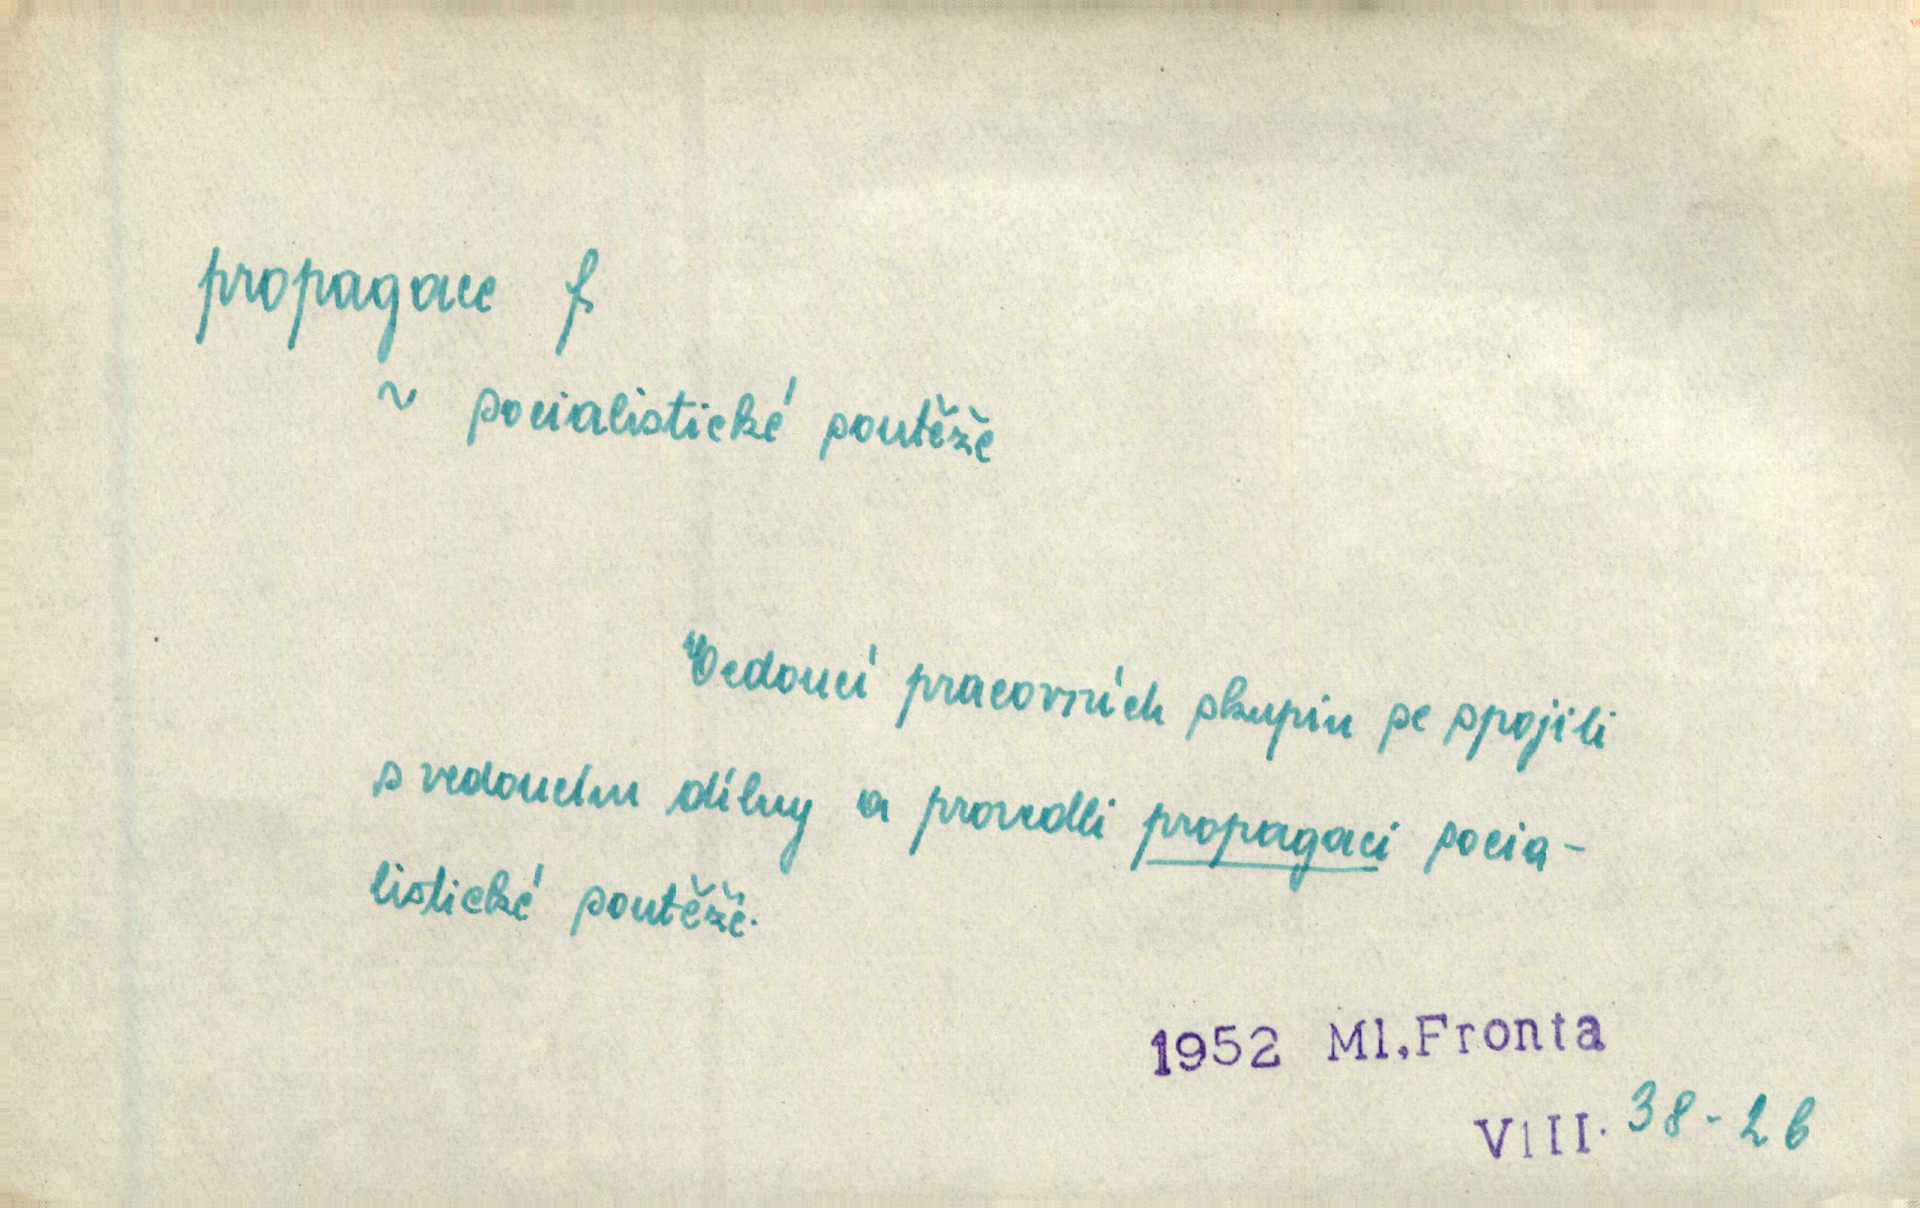 propagace f
~ socialistické soutěže
Vedoucí pracovních skupin se spojili
s vedoucím dílny a provedli propagaci socia-
listické soutěže.
1952 Ml.Fronta
VIII. 38-2b